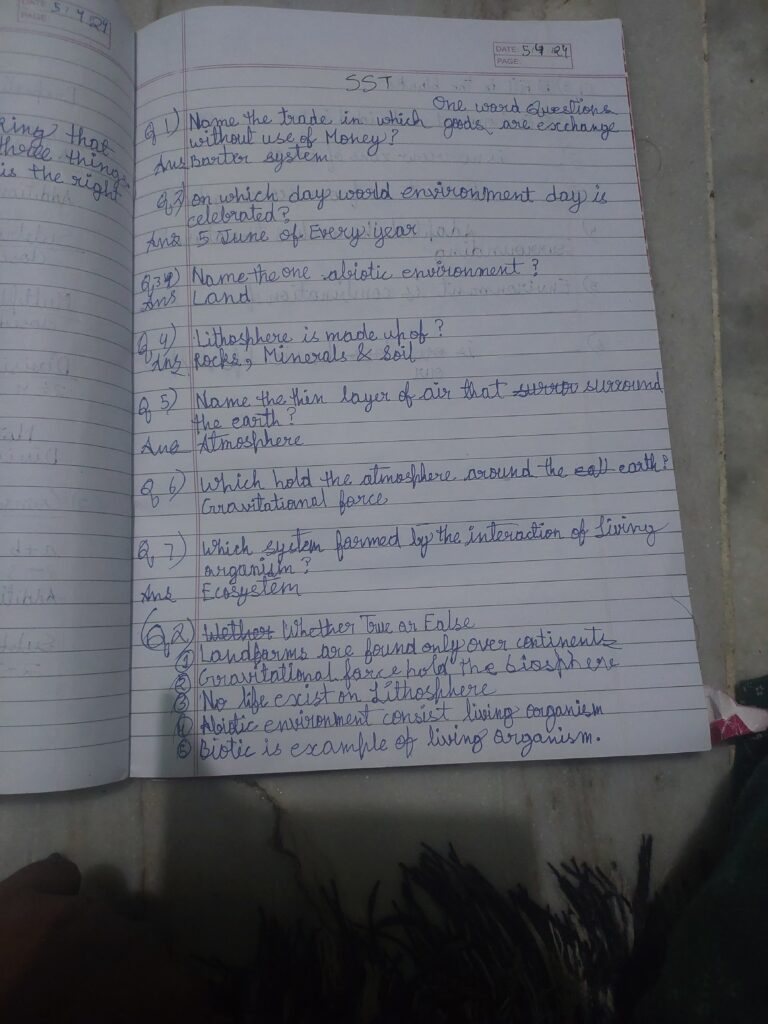 DATE: 5.4.24
PAGE:
king that
three things
is the right
DATE: 5.4.24
PAGE:
SST
One word Questions
Q 1) Name the trade in which goods are exchange
without use of Money?
Ans Barter system
Q 2) on which day world environment day is
celebrated?
Ans 5 June of Every year.
Q 3) Name the one abiotic environment?
Ans Land
Q 4) Lithosphere is made up of?
Ans Rocks, Minerals & Soil
Q 5) Name the thin layer of air that surrou surround
the earth?
Ans Atmosphere
Q 6) Which hold the atmosphere around the eath earth?
Gravitational force
Q 7) Which system formed by the interaction of Living
organism?
Ans Ecosystem
(Q 2) Wether Whether True or False
1 Landforms are found only over continents
2 Gravitational force hold the biosphere
3 No life exist on Lithosphere
4 Abiotic environment consist living organism
5 Biotic is example of living organism.